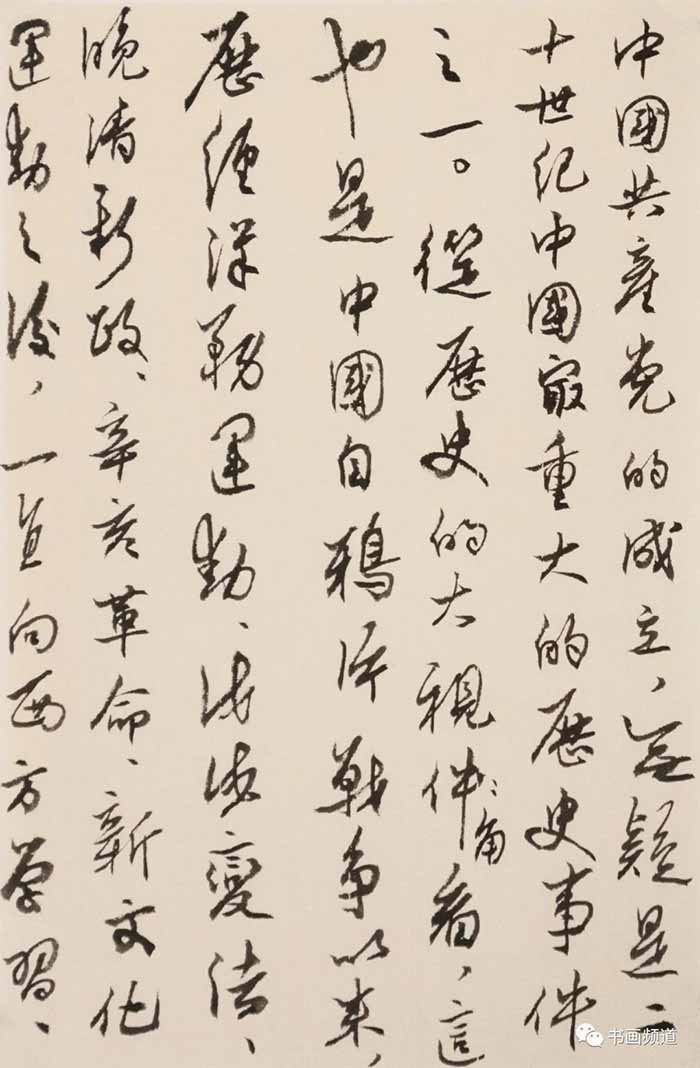 中國共產党的成立，無疑是二
十世纪中國最重大的歷史事件
之一。從歷史的大視件角看，這
也是中國自鴉片戰争以来，
歷經洋務運動、戊戌變法、
晚清新政、辛亥革命、新文化
運動之後，一直向西方學習、
书画频道